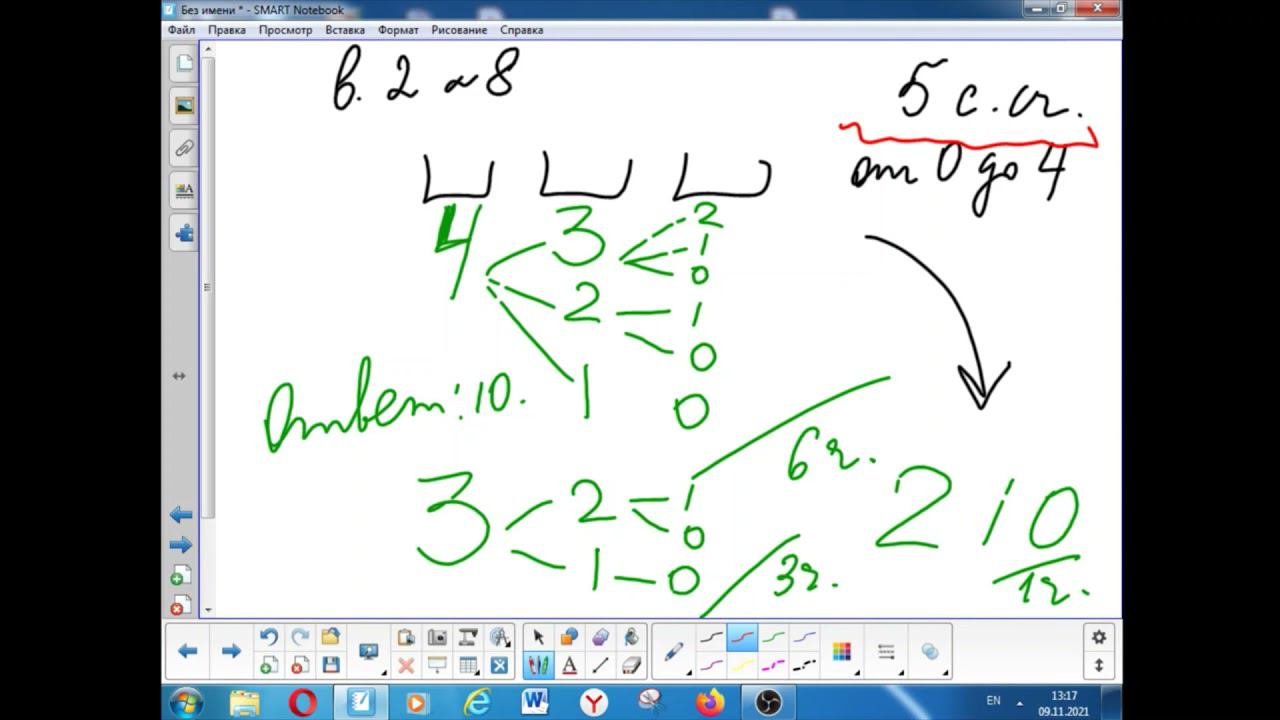 Без имени * - SMART Notebook
Файл Правка Просмотр Вставка Формат Рисование Справка
в. 2 №8
5 с. сч.
от 0 до 4
4 3 2
1
0
2 1
0
1 0
Ответ: 10.
6 ч.
3 2 1
0
1 0
3 ч.
2 1 0
1 ч.
EN
13:17
09.11.2021